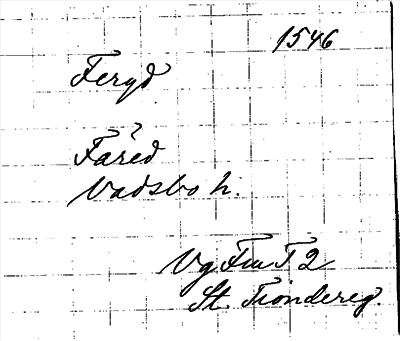 1546
Feryd
?
Fåred
Vadsbo h.
Vg Fm T 2
St. Tiondereg.